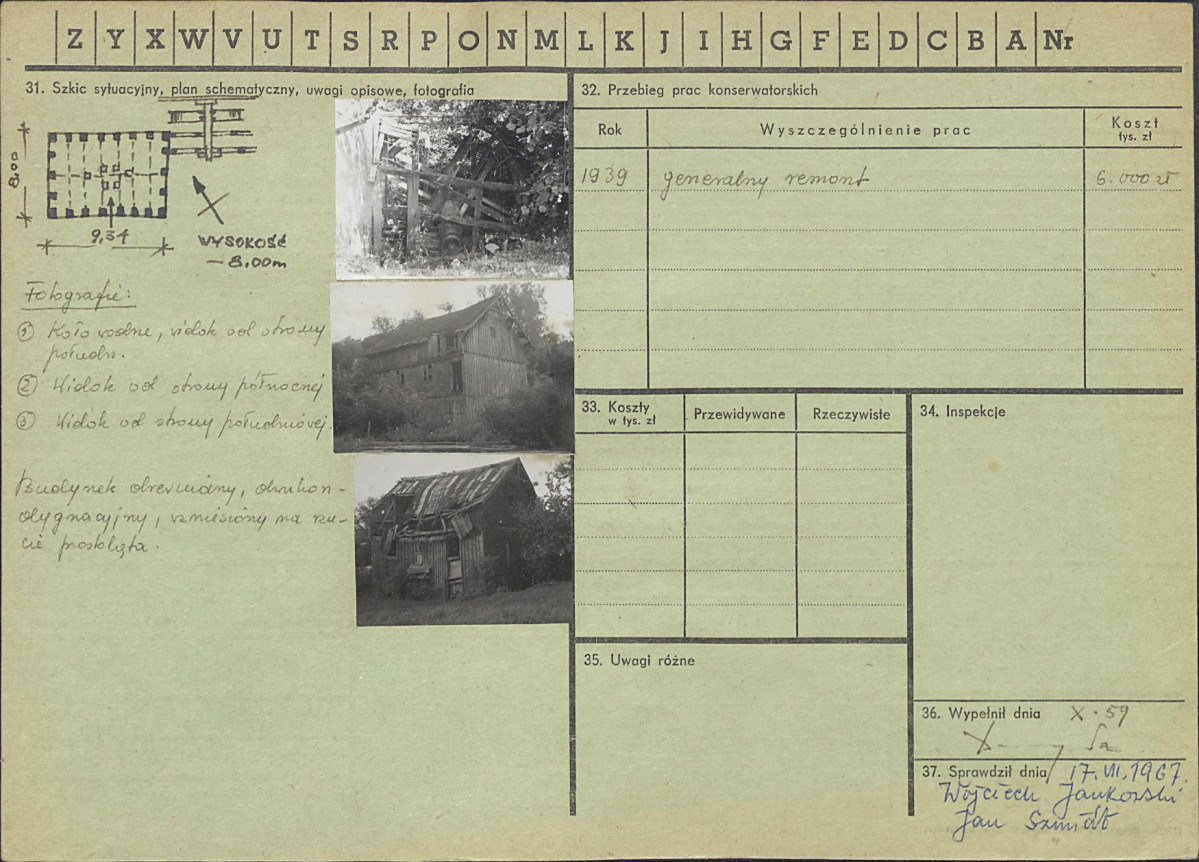 Z Y X W V U T S R P O N M L K J I H G F E D C B A Nr
31. Szkic sytuacyjny, plan schematyczny, uwagi opisowe, fotografia
8,00
9,34
WYSOKOŚĆ
– 8,00m
Fotografie:
① Koło wodne, widok od strony
połudn.
② Widok od strony północnej
③ Widok od strony południowej.
Budynek drewniany, dwukon-
dygnacyjny, wzniesiony na rzu-
cie prostokąta.
32. Przebieg prac konserwatorskich
Rok Wyszczególnienie prac Koszt
tys. zł
1939 generalny remont 6.000 zł
33. Koszty
w tys. zł
Przewidywane Rzeczywiste
34. Inspekcje
35. Uwagi różne
36. Wypełnił dnia X.59
37. Sprawdził dnia 17.VII.1967.
Wojciech Jankowski
Jan Szmidt